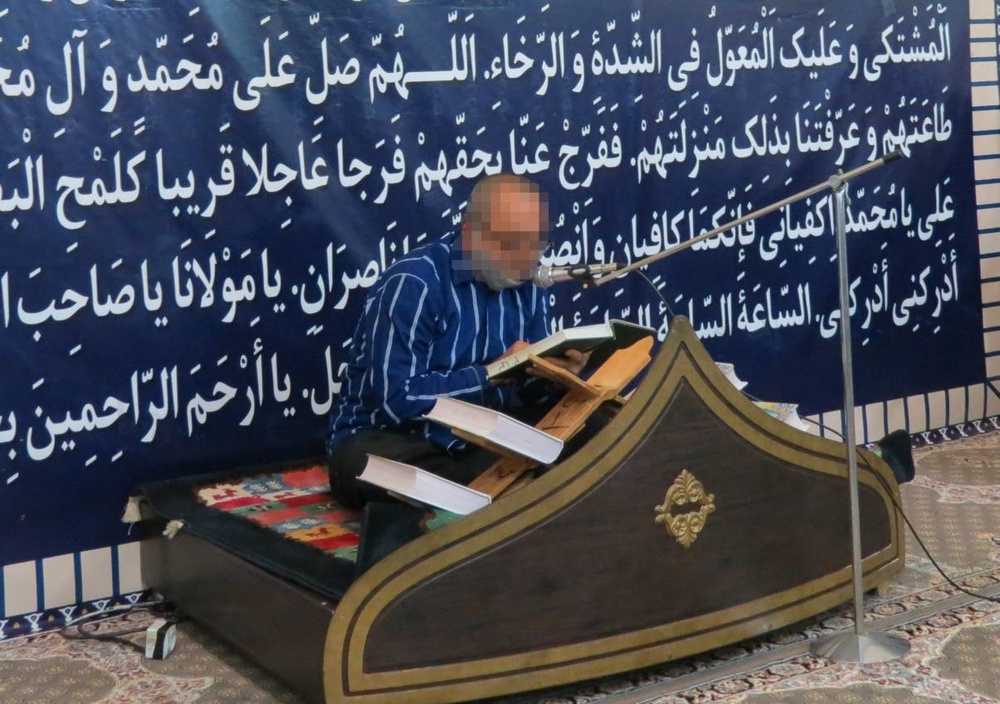 الْمُشْتَکی وَ عَلَیْکَ الْمُعَوَّلُ فِی الشِّدَّةِ وَ الرَّخَاءِ. اَللّهُمَّ صَلِّ عَلَی مُحَمَّدٍ وَ آلِ
طَاعَتَهُمْ وَ عَرَّفْتَنَا بِذَلِکَ مَنْزِلَتَهُمْ. فَفَرِّجْ عَنَّا بِحَقِّهِمْ فَرَجا عَاجِلا قَرِیبا کَلَمْحِ
عَلِی یا مُحَمَّدُ اِکْفِیَانِی فَاِنَّکُمَا کَافِیَانِ نَاصِرَانِ. یا مَوْلَانَا یا صَاحِبَ
أَدْرِکْنِی أَدْرِکْنِی. السَّاعَةَ یا أَرْحَمَ الرَّاحِمِینَ